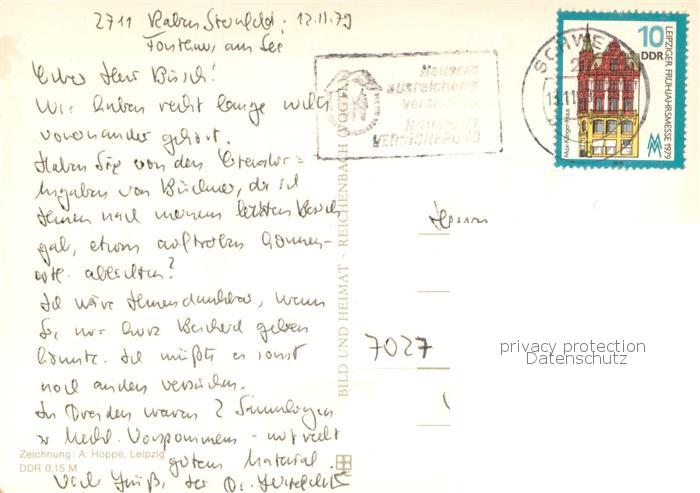 2711 Raben Steinfeld, 12.11.79
Forsthaus am See
Lieber Herr Büsch!
Wir haben recht lange nichts
voneinander gehört.
Haben Sie von den Literatur =
Angaben von Büchner, die ich
Ihnen nach meinem letzten Besuch
gab, etwas auftreiben können -
evtl. ablichten?
Ich wäre Ihnen dankbar, wenn
Sie mir kurz Bescheid geben
könnte. Ich müßte es sonst
noch anders versuchen.
In Dresden waren 2 Sammlungen
zu Meckl. Vorpommern - mit recht
gutem Material.
Viele Grüße, Ihr Dr.
Zeichnung: A. Hoppe, Leipzig
DDR 0,15 M
BILD UND HEIMAT · REICHENBACH (VOGTL)
Hausrat
ausreichend
versichern
HAUSRAT
VERSICHERUNG
SCHWE
13.11.
10
DDR
LEIPZIGER FRÜHJAHRSMESSE 1979
Max-Klinger-Haus
MM
Herrn
7027
privacy protection
Datenschutz